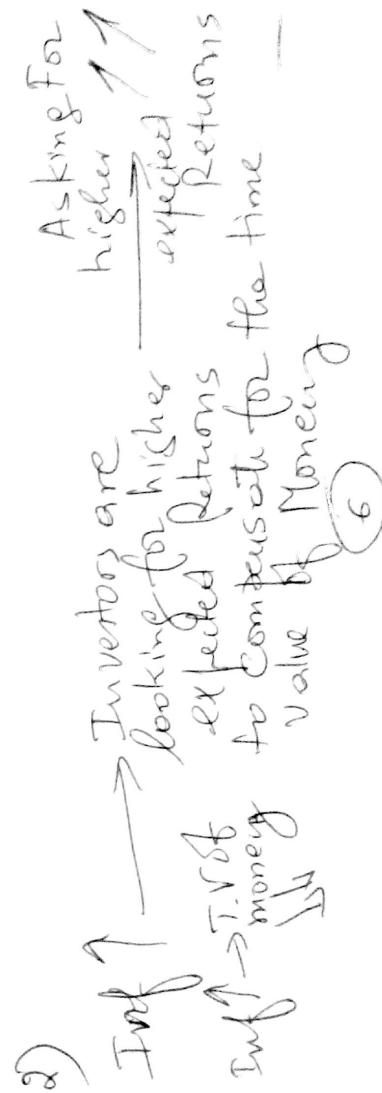 2)
Inf ↑ → Investors are
looking for higher
expected Returns
to compensate for the time
value of Money
→ Asking For
higher ↑ ↑
expected
Returns
Inf ↑ → T.V of
money
6